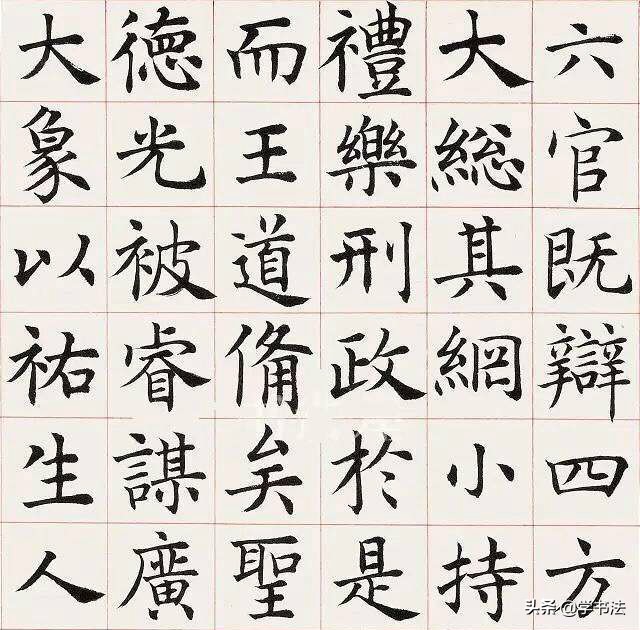 六官既辯四方
大総其綱小持
禮樂刑政於是
而王道備矣聖
德光被睿謀廣
大象以祐生人
头条 @学书法